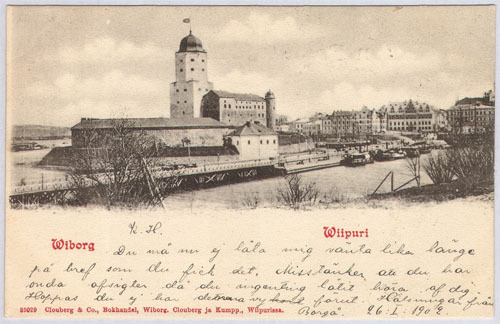 K. H.
Wiborg
Wiipuri
Du må nu ej låta mig vänta lika länge
på bref som du fick det. Misstänker att du har
onda afsigter då du ingenting låtit höra af dig
Hoppas du ej har förut. Hälsningar från
Borgå. 26-I-1902
25029 Clouberg & Co., Bokhandel, Wiborg. Clouberg ja Kumpp., Wiipurissa.